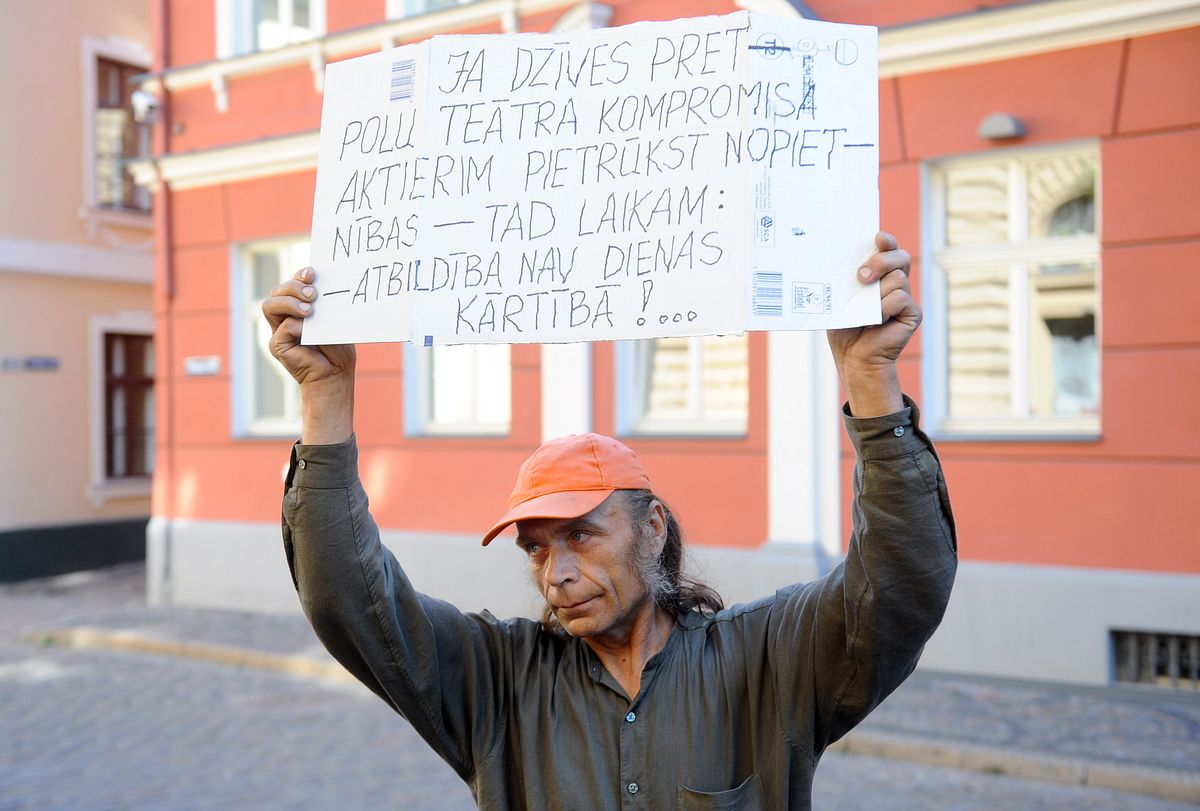 JA DZĪVES PRET-
POLU TEĀTRA KOMPROMISĀ
AKTIERIM PIETRŪKST NOPIET-
NĪBAS — TAD LAIKAM:
—ATBILDĪBA NAV DIENAS
KĀRTĪBĀ !...
T2
SCA